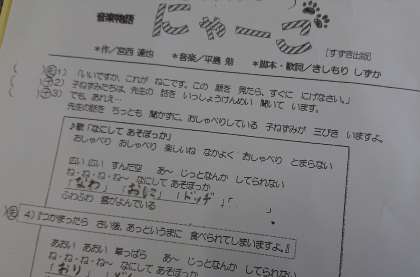 音楽物語
にゃーご
[すずき出版]
*作／宮西 達也 *音楽／平島 勉 *脚本・歌詞／きしもり しずか
1) 「いいですか、これが ねこです。この 顔を 見たら、すぐに にげなさい。」
2) 子ねずみたちは、先生の 話を いっしょうけんめい 聞いて います。
3) でも、あれえ…
先生の話を ちっとも 聞かずに、おしゃべりしている 子ねずみが 三びき いますよ。
♪歌「なにして あそぼっか」
おしゃべり おしゃべり 楽しいね なかよく おしゃべり とまらない
広い 広い すんだ空 あ～ じっとなんか してられない
ね・ね・ね・ね～ なにして あそぼっか
「なわ」 「おに」 「ドッヂ」 「 」
ふわふわ 雲がよんでいる
4) 『つかまったら さい後、あっというまに 食べられてしまいますよ。』
あおい あおい 草っぱら あ～ じっとなんか してられない
ね・ね・ね・ね～ なにして あそぼっか